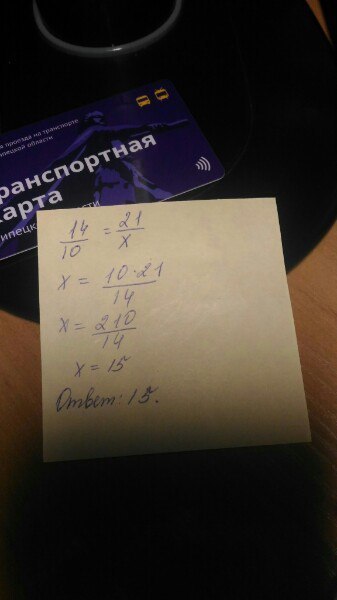 проезда на транспорте
ипецкой области
ранспортная
карта
14/10 = 21/x
x = 10·21/14
x = 210/14
x = 15
Ответ: 15.